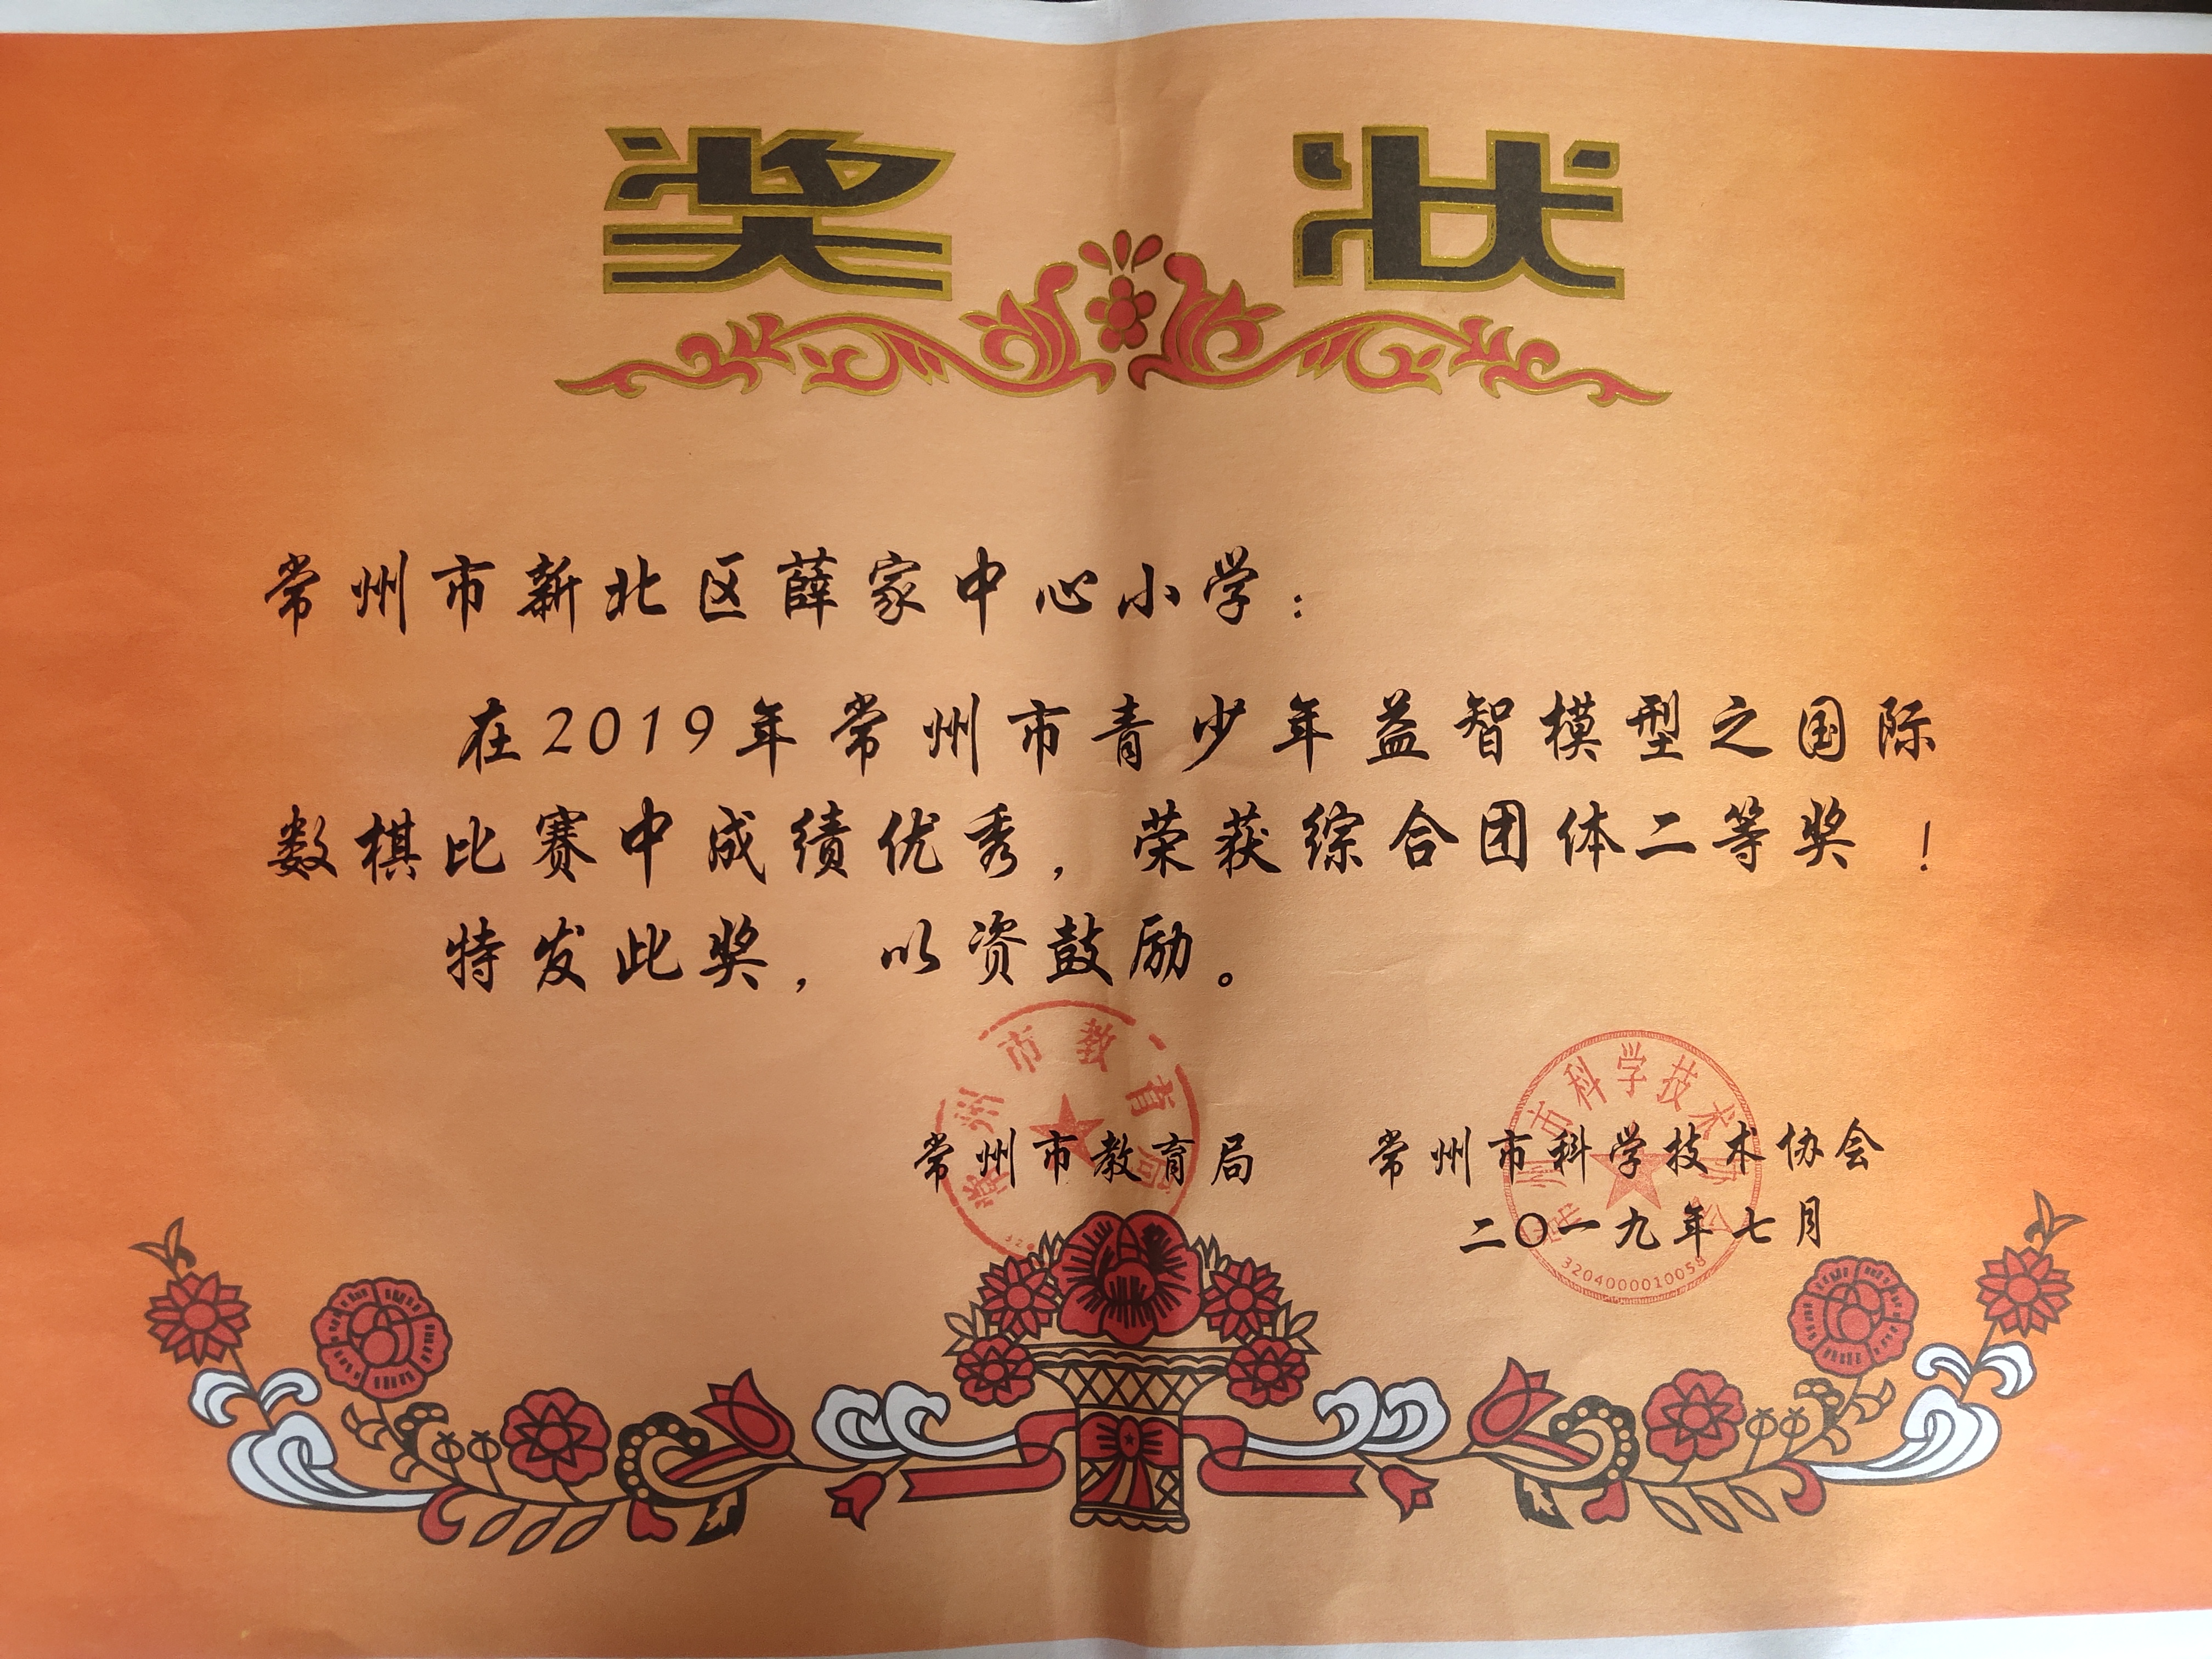 奖状
常州市新北区薛家中心小学：
在2019年常州市青少年益智模型之国际
数棋比赛中成绩优秀，荣获综合团体二等奖！
特发此奖，以资鼓励。
常州市教育局 常州市科学技术协会
二〇一九年七月
常州市教育局
常州市科学技术协会
3204000010058